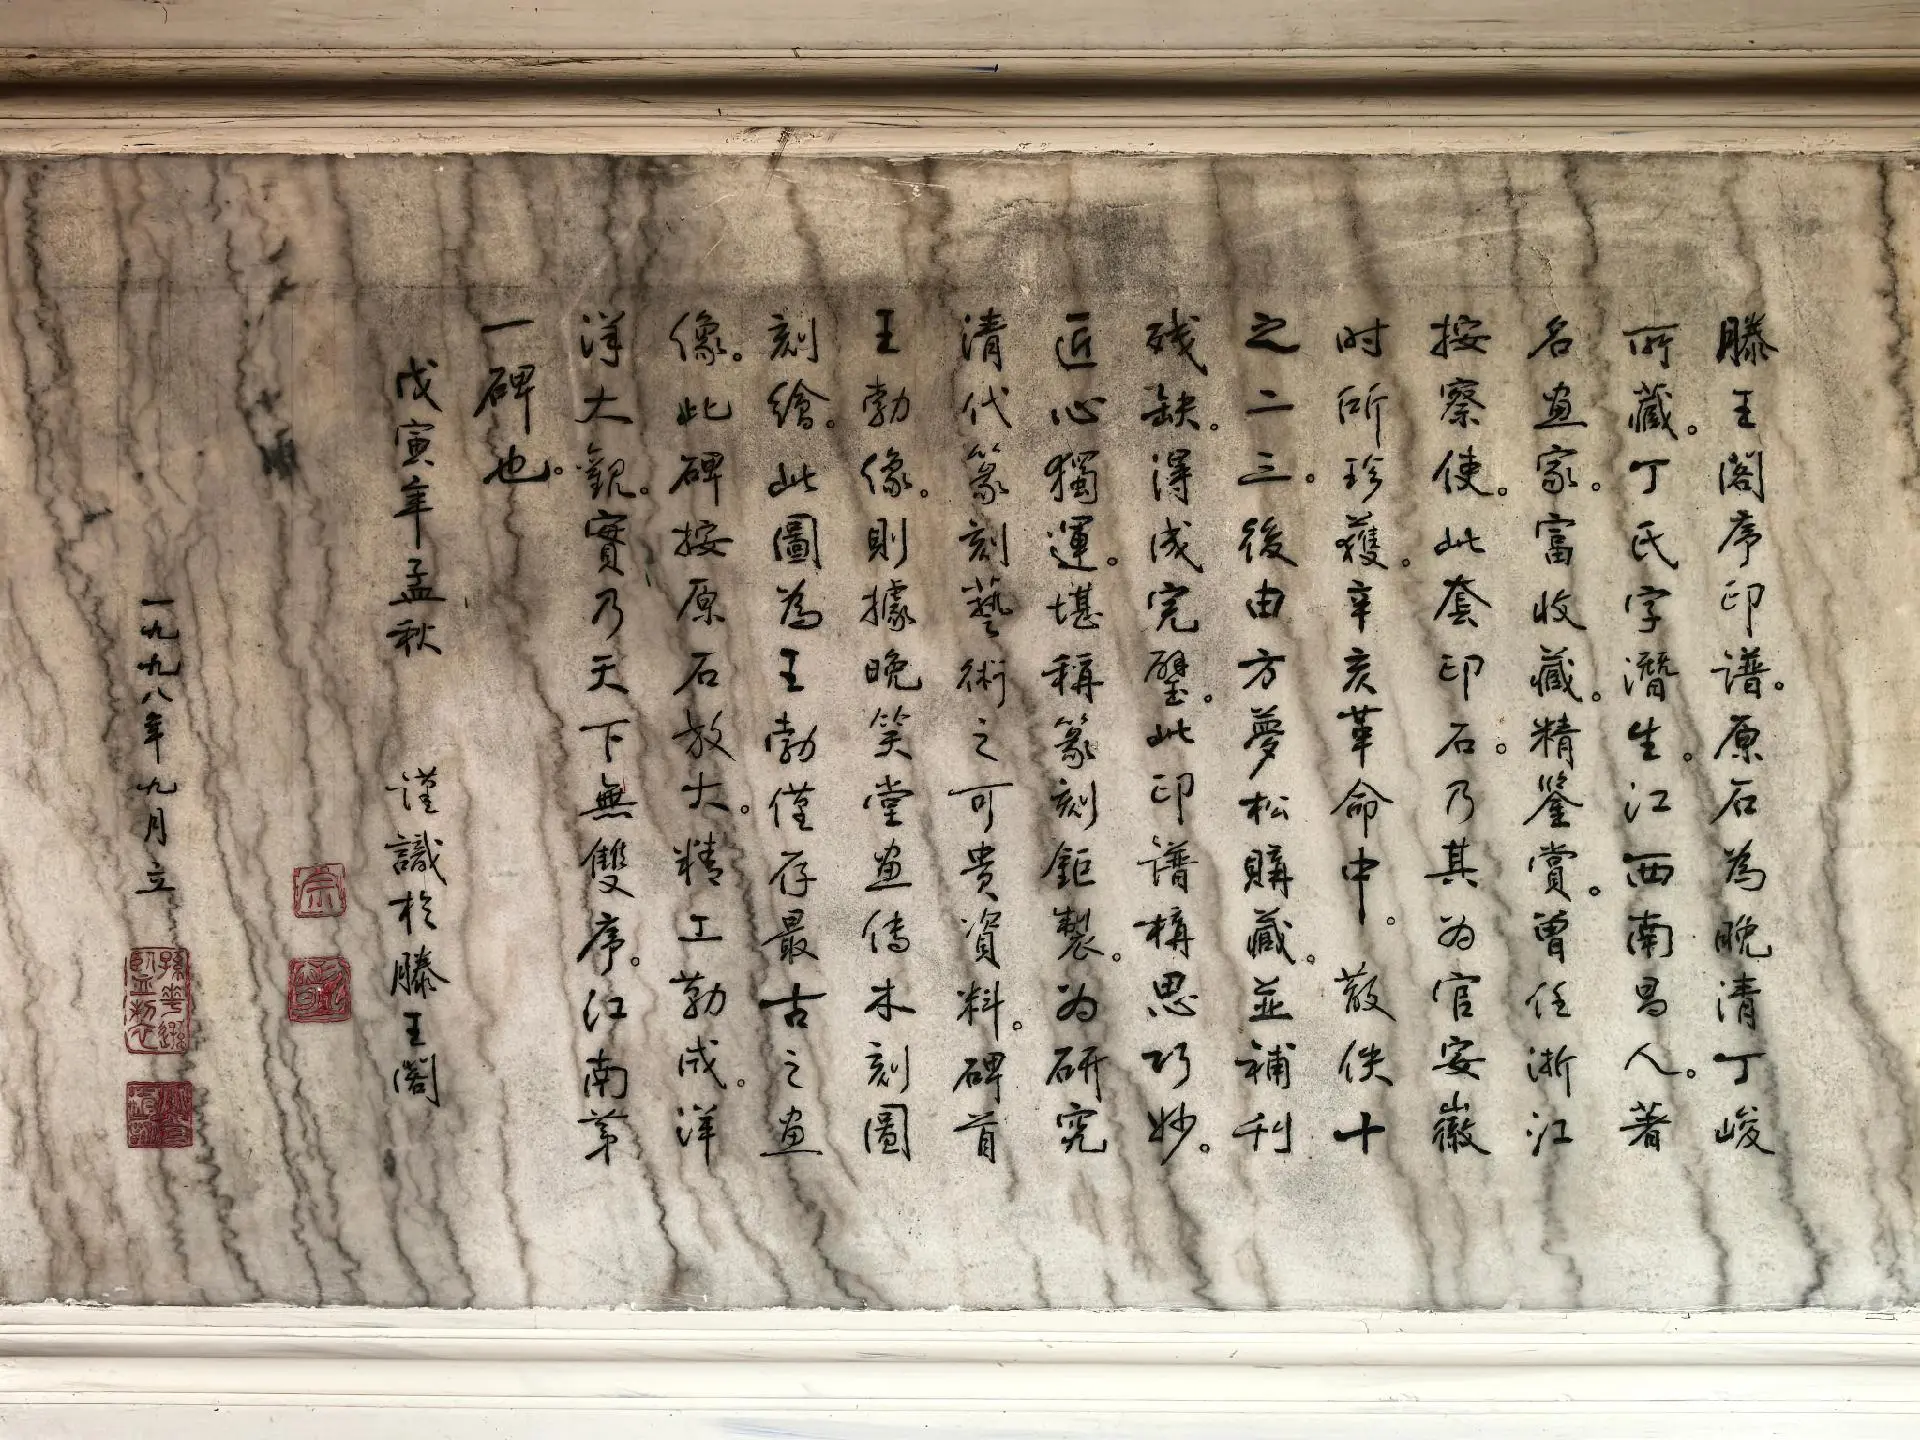 滕王阁序印谱。原石為晚清丁峻
所藏。丁氏字潛生。江西南昌人。著
名畫家。富收藏。精鉴賞。曾任浙江
按察使。此套印石。乃其为官安徽
时所珍獲。辛亥革命中。散佚十
之二三。後由方夢松購藏。並補刊
残缺。得成完璧。此印谱構思巧妙。
匠心獨運。堪稱篆刻鉅製。为研究
清代篆刻藝術之可貴資料。碑首
王勃像。則據晚笑堂畫傳木刻圖
刻繪。此圖為王勃僅存最古之畫
像。此碑按原石放大。精工勒成。洋
洋大觀。實乃天下無雙序。江南第
一碑也。
戊寅年孟秋 谨識於滕王阁
一九九八年九月立